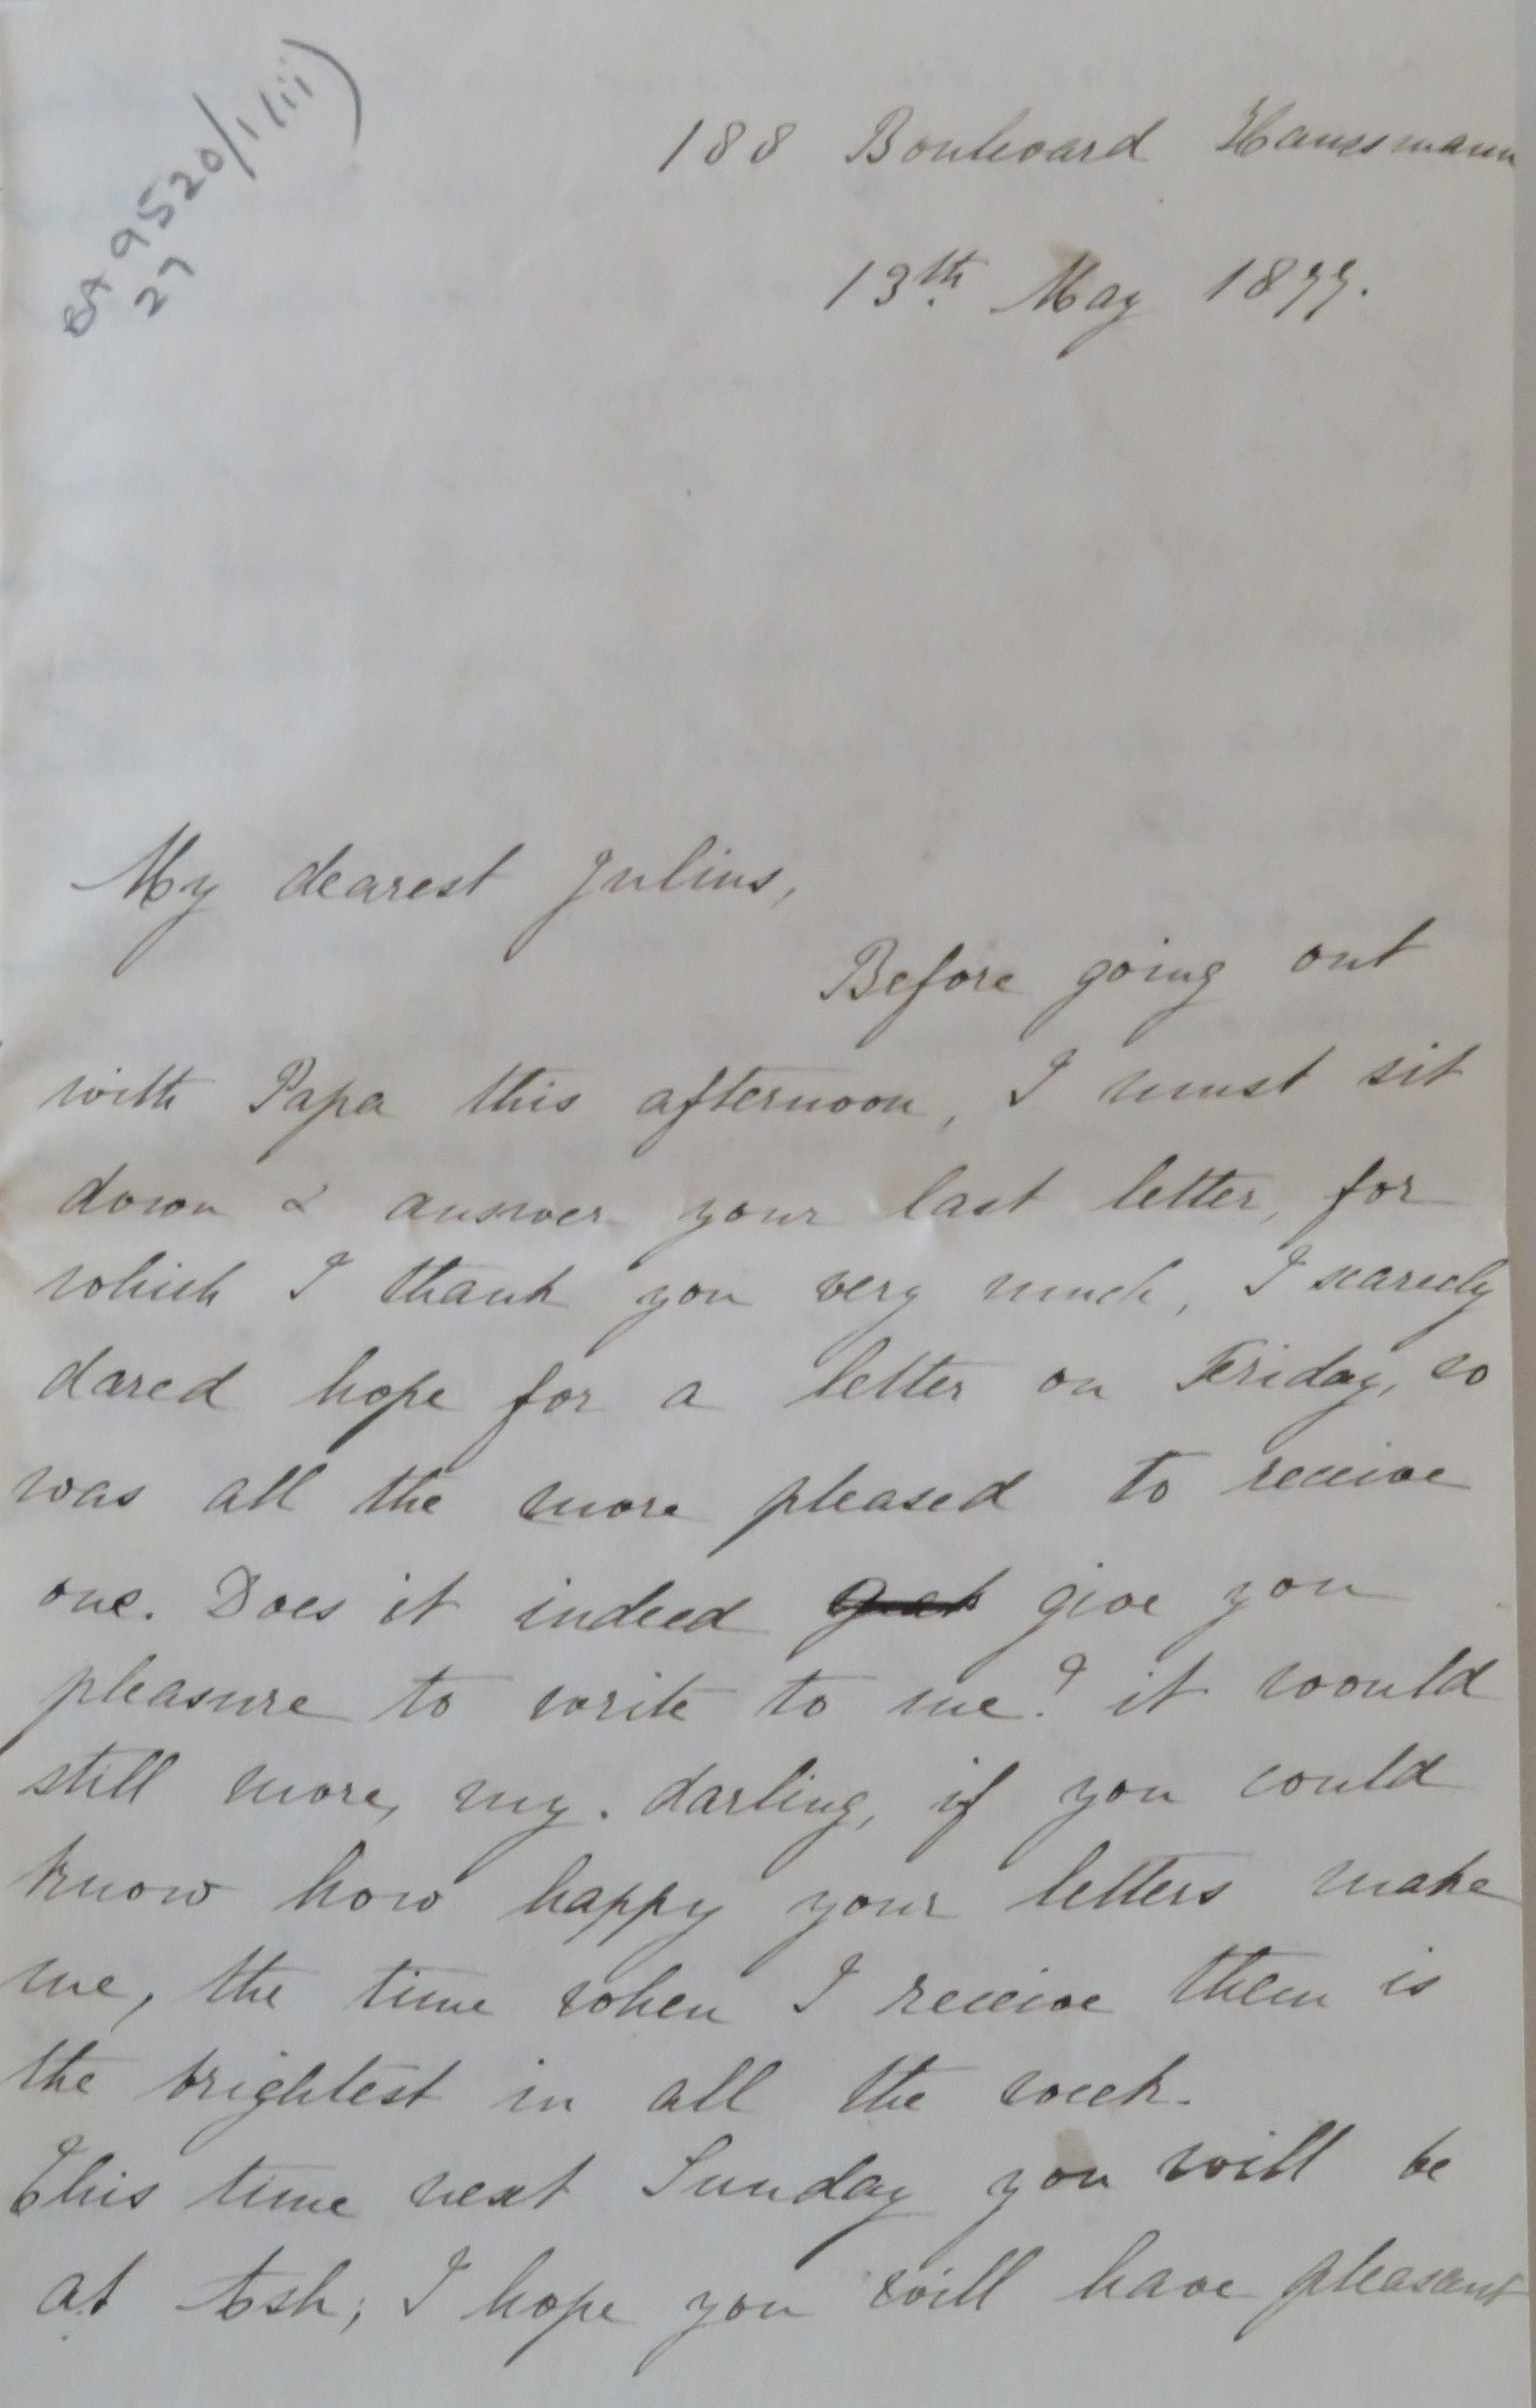 BA 9520/1(ii)
27
188 Boulevard Haussmann
13th. May 1877.
My dearest Julius,
Before going out
with Papa this afternoon, I must sit
down & answer your last letter, for
which I thank you very much, I scarcely
dared hope for a letter on Friday, so
was all the more pleased to receive
one. Does it indeed give you
pleasure to write to me? it would
still more, my darling, if you could
know how happy your letters make
me, the time when I receive them is
the brightest in all the week.
This time next Sunday you will be
at Ash; I hope you will have pleasant